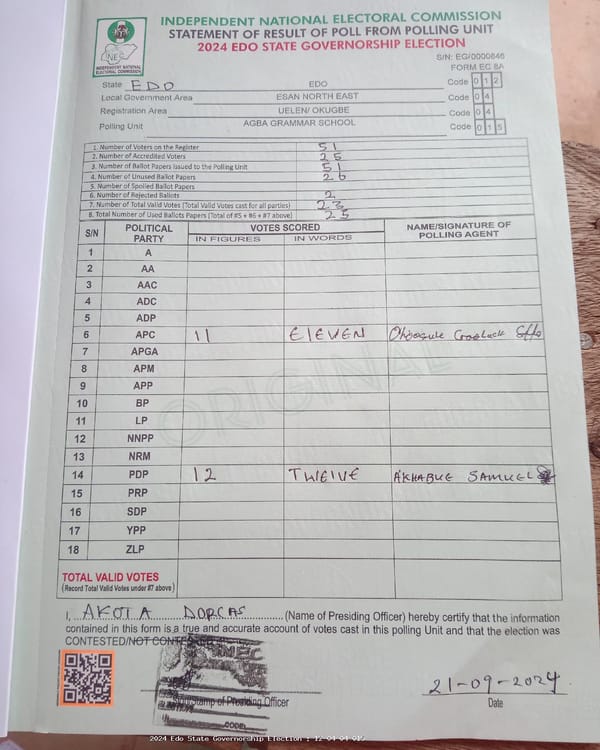 INDEPENDENT NATIONAL ELECTORAL COMMISSION
STATEMENT OF RESULT OF POLL FROM POLLING UNIT
2024 EDO STATE GOVERNORSHIP ELECTION
INDEPENDENT NATIONAL ELECTORAL COMMISSION
S/N: EG/0000646
FORM EC 8A
State EDO EDO Code 0 1 2
Local Government Area ESAN NORTH EAST Code 0 4
Registration Area UELEN/ OKUGBE Code 0 4
Polling Unit AGBA GRAMMAR SCHOOL Code 0 1 5
1. Number of Voters on the Register 51
2. Number of Accredited Voters 25
3. Number of Ballot Papers Issued to the Polling Unit 51
4. Number of Unused Ballot Papers 26
5. Number of Spoiled Ballot Papers
6. Number of Rejected Ballots 2
7. Number of Total Valid Votes (Total Valid Votes cast for all parties) 23
8. Total Number of Used Ballots Papers (Total of #5 + #6 + #7 above) 25
S/N POLITICAL PARTY VOTES SCORED NAME/SIGNATURE OF POLLING AGENT
IN FIGURES IN WORDS
1 A
2 AA
3 AAC
4 ADC
5 ADP
6 APC 11 ELEVEN
7 APGA
8 APM
9 APP
10 BP
11 LP
12 NNPP
13 NRM
14 PDP 12 TWELVE AKHABUE SAMUEL
15 PRP
16 SDP
17 YPP
18 ZLP
ORIGINAL
TOTAL VALID VOTES
(Record Total Valid Votes under #7 above)
I, AKOTA DORCAS (Name of Presiding Officer) hereby certify that the information
contained in this form is a true and accurate account of votes cast in this polling Unit and that the election was
CONTESTED/NOT CONTESTED
INEC
21-09-2024
Stamp of Presiding Officer
Date
CODE
2024 Edo State Governorship Election : 12-04-04-015